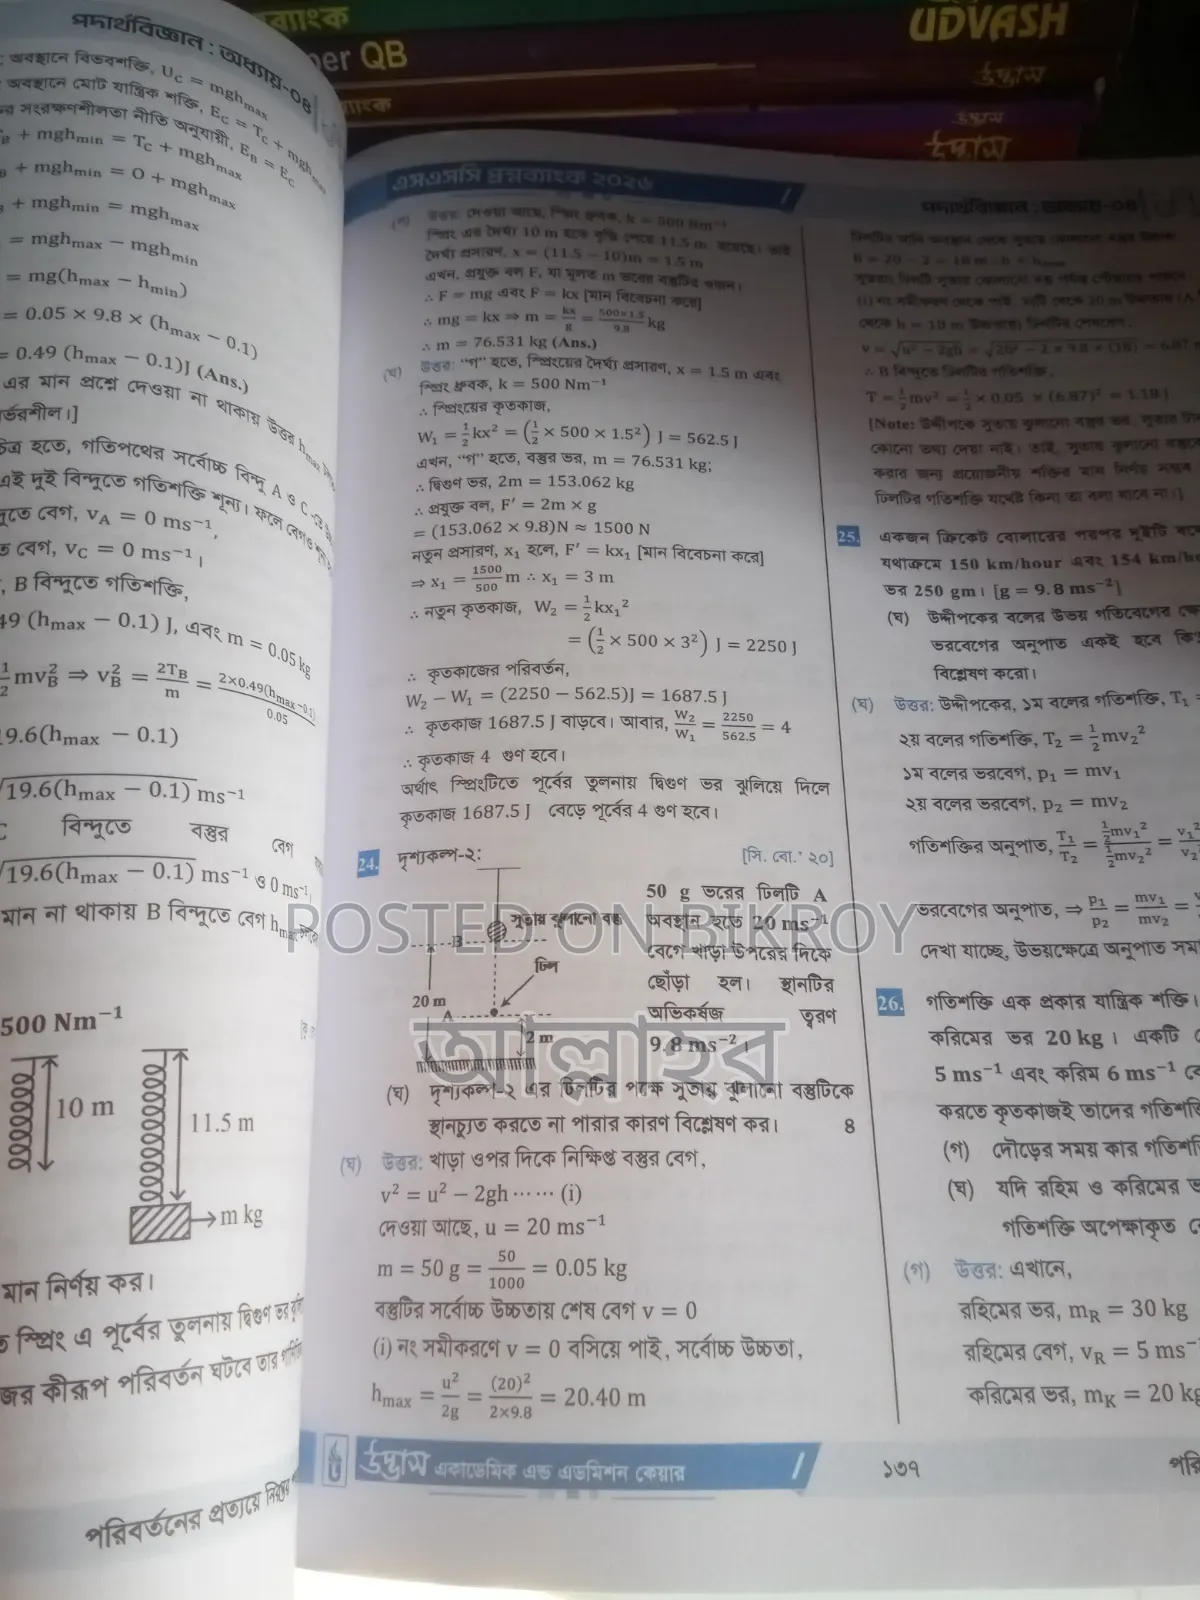 ব্যাংক
per QB
UDVASH
উদ্ভাস
উদ্ভাস
উদ্ভাস
পদার্থবিজ্ঞান : অধ্যায়-০৪
অবস্থানে বিভবশক্তি, U_C = mgh_max
অবস্থানে মোট যান্ত্রিক শক্তি, E_C = T_C + mgh_max
সংরক্ষণশীলতা নীতি অনুযায়ী, E_B = E_C
+ mgh_min = T_C + mgh_max
+ mgh_min = O + mgh_max
+ mgh_min = mgh_max
= mgh_max − mgh_min
= mg(h_max − h_min)
= 0.05 × 9.8 × (h_max − 0.1)
= 0.49 (h_max − 0.1)J (Ans.)
এর মান প্রশ্নে দেওয়া না থাকায় উত্তর h_max
র্ভরশীল।]
হতে, গতিপথের সর্বোচ্চ বিন্দু A ও C
এই দুই বিন্দুতে গতিশক্তি শূন্য। ফলে বেগও
বেগ, v_A = 0 ms⁻¹,
বেগ, v_C = 0 ms⁻¹।
, B বিন্দুতে গতিশক্তি,
49 (h_max − 0.1) J, এবং m = 0.05 kg
½mv_B² ⇒ v_B² = 2T_B/m = 2×0.49(h_max−0.1)/0.05
19.6(h_max − 0.1)
√19.6(h_max − 0.1) ms⁻¹
C বিন্দুতে বস্তুর বেগ
√19.6(h_max − 0.1) ms⁻¹ ও 0 ms⁻¹
মান না থাকায় B বিন্দুতে বেগ h_max
500 Nm⁻¹
10 m
11.5 m
m kg
মান নির্ণয় কর।
স্প্রিং এ পূর্বের তুলনায় দ্বিগুণ ভর
জের কীরূপ পরিবর্তন ঘটবে তার
পরিবর্তনের প্রত্যয়ে নিরন্তর
এসএসসি প্রশ্নব্যাংক ২০২৬
(গ) উত্তর: দেওয়া আছে, স্প্রিং ধ্রুবক, k = 500 Nm⁻¹
স্প্রিং এর দৈর্ঘ্য 10 m হতে বৃদ্ধি পেয়ে 11.5 m হয়েছে। তাই
দৈর্ঘ্য প্রসারণ, x = (11.5 − 10)m = 1.5 m
এখন, প্রযুক্ত বল F, যা মূলত m ভরের বস্তুটির ওজন।
∴ F = mg এবং F = kx [মান বিবেচনা করে]
∴ mg = kx ⇒ m = kx/g = 500×1.5/9.8 kg
∴ m = 76.531 kg (Ans.)
(ঘ) উত্তর: “গ” হতে, স্প্রিংয়ের দৈর্ঘ্য প্রসারণ, x = 1.5 m এবং
স্প্রিং ধ্রুবক, k = 500 Nm⁻¹
∴ স্প্রিংয়ের কৃতকাজ,
W₁ = ½kx² = (½ × 500 × 1.5²) J = 562.5 J
এখন, “গ” হতে, বস্তুর ভর, m = 76.531 kg;
∴ দ্বিগুণ ভর, 2m = 153.062 kg
∴ প্রযুক্ত বল, F′ = 2m × g
= (153.062 × 9.8)N ≈ 1500 N
নতুন প্রসারণ, x₁ হলে, F′ = kx₁ [মান বিবেচনা করে]
⇒ x₁ = 1500/500 m ∴ x₁ = 3 m
∴ নতুন কৃতকাজ, W₂ = ½kx₁²
= (½ × 500 × 3²) J = 2250 J
∴ কৃতকাজের পরিবর্তন,
W₂ − W₁ = (2250 − 562.5)J = 1687.5 J
∴ কৃতকাজ 1687.5 J বাড়বে। আবার, W₂/W₁ = 2250/562.5 = 4
∴ কৃতকাজ 4 গুণ হবে।
অর্থাৎ স্প্রিংটিতে পূর্বের তুলনায় দ্বিগুণ ভর ঝুলিয়ে দিলে
কৃতকাজ 1687.5 J বেড়ে পূর্বের 4 গুণ হবে।
24. দৃশ্যকল্প-২: [সি. বো.' ২০]
সুতায় ঝুলানো বস্তু
B
ঢিল
20 m
A
2 m
50 g ভরের ঢিলটি A
অবস্থান হতে 20 ms⁻¹
বেগে খাড়া উপরের দিকে
ছোঁড়া হল। স্থানটির
অভিকর্ষজ ত্বরণ
9.8 ms⁻²।
(ঘ) দৃশ্যকল্প-২ এর ঢিলটির পক্ষে সুতায় ঝুলানো বস্তুটিকে
স্থানচ্যুত করতে না পারার কারণ বিশ্লেষণ কর। 8
(ঘ) উত্তর: খাড়া ওপর দিকে নিক্ষিপ্ত বস্তুর বেগ,
v² = u² − 2gh ⋯⋯ (i)
দেওয়া আছে, u = 20 ms⁻¹
m = 50 g = 50/1000 = 0.05 kg
বস্তুটির সর্বোচ্চ উচ্চতায় শেষ বেগ v = 0
(i) নং সমীকরণে v = 0 বসিয়ে পাই, সর্বোচ্চ উচ্চতা,
h_max = u²/2g = (20)²/2×9.8 = 20.40 m
উদ্ভাস একাডেমিক এন্ড এডমিশন কেয়ার
১৩৭
পরি
পদার্থবিজ্ঞান : অধ্যায়-০৪
v = √u² − 2gh = √20² − 2 × 9.8 × (18) = 6.87
∴ B বিন্দুতে ঢিলটির গতিশক্তি,
T = ½mv² = ½ × 0.05 × (6.87)² = 1.18 J
ঢিলটির গতিশক্তি যথেষ্ট কিনা তা বলা যাবে না।]
25. একজন ক্রিকেট বোলারের পরপর দুইটি
যথাক্রমে 150 km/hour এবং 154 km/h
ভর 250 gm। [g = 9.8 ms⁻²]
(ঘ) উদ্দীপকের বলের উভয় গতিবেগের
ভরবেগের অনুপাত একই হবে কি
বিশ্লেষণ করো।
(ঘ) উত্তর: উদ্দীপকের, ১ম বলের গতিশক্তি, T₁ =
২য় বলের গতিশক্তি, T₂ = ½mv₂²
১ম বলের ভরবেগ, p₁ = mv₁
২য় বলের ভরবেগ, p₂ = mv₂
গতিশক্তির অনুপাত, T₁/T₂ = ½mv₁²/½mv₂² = v₁²/v₂
ভরবেগের অনুপাত, ⇒ p₁/p₂ = mv₁/mv₂ =
দেখা যাচ্ছে, উভয়ক্ষেত্রে অনুপাত
26. গতিশক্তি এক প্রকার যান্ত্রিক শক্তি।
করিমের ভর 20 kg। একটি
5 ms⁻¹ এবং করিম 6 ms⁻¹
করতে কৃতকাজই তাদের গতিশক্তি
(গ) দৌড়ের সময় কার
(ঘ) যদি রহিম ও করিমের
গতিশক্তি অপেক্ষাকৃত
(গ) উত্তর: এখানে,
রহিমের ভর, m_R = 30 kg
রহিমের বেগ, v_R = 5 ms⁻
করিমের ভর, m_K = 20 kg
POSTED ON BIKROY
আল্লাহর